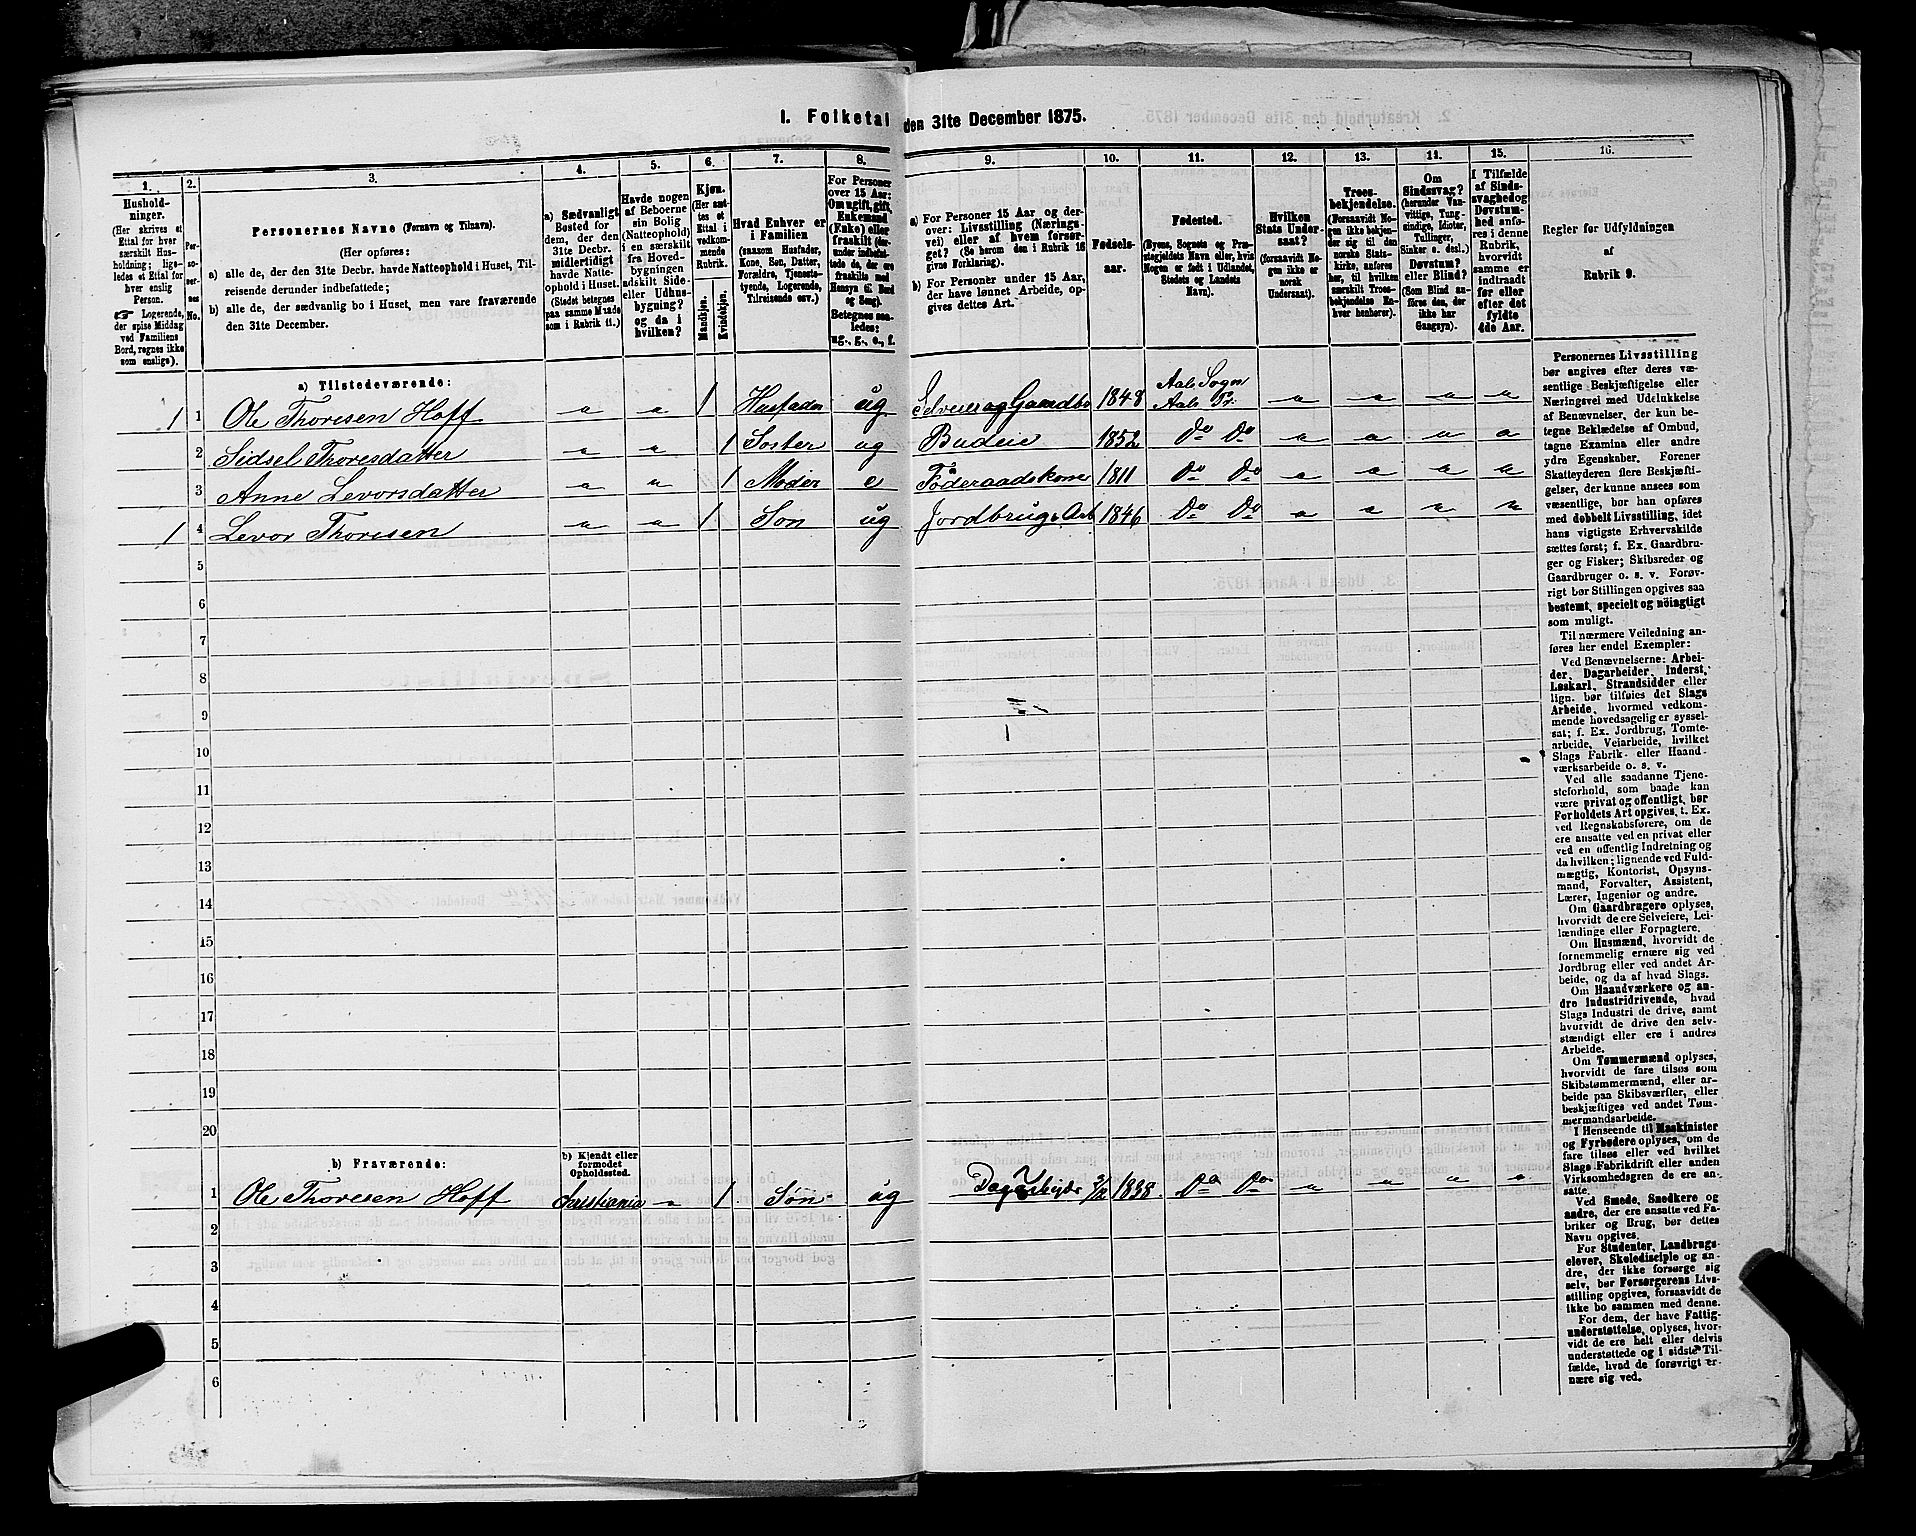 1. Folketal den 31te December 1875.
1.
Hushold-
ninger.
(Her skrives et
Ettal for hver
særskilt Hus-
holdning; lige-
ledes et Ettal for
hver enslig
Person.
☞ Logerende,
der spise Middag
ved Familiens
Bord, regnes ikke
som enslige).
2.
Per-
so-
ner-
nes
No.
3.
Personernes Navne (Fornavn og Tilnavn).
(Her opføres:
a) alle de, der den 31te Decbr. havde Natteophold i Huset, Til-
reisende derunder indbefattede;
b) alle de, der sædvanlig bo i Huset, men vare fraværende
den 31te December.
4.
a) Sædvanligt
Bosted for
dem, der den
31te Decbr.
midlertidigt
havde Natte-
ophold i Huset.
(Stedet betegnes
paa samme Maade
som i Rubrik 11.)
5.
Havde nogen
af Beboerne
sin Bolig
(Natteophold)
i en særskilt
fra Hoved-
bygningen
adskilt Side-
eller Udhus-
bygning?
og da i
hvilken?
6.
Kjøn.
(Her sæt-
tes et
Ettal i
vedkom-
mende
Rubrik.
Mandkjøn.
Kvindekjøn.
7.
Hvad Enhver er
i Familien
(saasom Husfader,
Kone, Søn, Datter,
Forældre, Tjeneste-
tyende, Logerende,
Tilreisende osv.)
8.
For Personer
over 15 Aar:
Om ugift, gift,
Enkemand
(Enke) eller
fraskilt (her-
under indbefat-
tede de, der ere
fraskilte med
Hensyn til Bord
og Seng).
Betegnes saa-
ledes:
ug., g., e., f.
9.
a) For Personer 15 Aar og der-
over: Livsstilling (Nærings-
vei) eller af hvem forsør-
get? (Se herom den i Rubrik 16
givne Forklaring).
b) For Personer under 15 Aar,
der have lønnet Arbeide, op-
gives dettes Art.
10.
Fødsels-
aar.
11.
Fødested.
(Byens, Sognets og Præ-
stegjeldets Navn eller, hvis
Nogen er født i Udlandet,
Stedets og Landets
Navn).
12.
Hvilken
Stats Under-
saat?
(forsaavidt No-
gen ikke er
norsk
Undersaat).
13.
Troes-
bekjendelse.
(Forsaavidt No-
gen ikke bekjen-
der sig til den
norske Stats-
kirke, anføres
her, til hvilken
særskilt Troes-
bekjendelse En-
hver henhører).
14.
Om
Sindssvag?
(herunder Van-
vittige, Tung-
sindige, Idioter,
Tullinger,
Sinker o. desl.)
Døvstum?
eller Blind?
(Som Blind an-
føres den, der
ikke har
Gangsyn).
15.
I Tilfælde
af Sinds-
svaghed og
Døvstum-
hed anfø-
res i denne
Rubrik,
hvorvidt
samme er
indtraadt
før eller
efter det
fyldte
4de Aar.
16.
Regler for Udfyldningen
af
Rubrik 9.
a) Tilstedeværende:
1 1 Ole Thoresen Hoff 1 Husfader ug Selveier og Gaardbr 1848 Aals Sogn Aals Pr.
2 Sidsel Thoresdatter 1 Søster ug Budeie 1852 Do Do
3 Anne Levorsdatter 1 Moder e Föderaadskone 1811 Do Do
1 4 Levor Thoresen 1 Søn ug Jordbrugs Arb 1846 Do Do
5
6
7
8
9
10
11
12
13
14
15
16
17
18
19
20
b) Fraværende:
b) Kjendt eller
formodet
Opholdssted.
1 Ole Thoresen Hoff Christiania 1 Søn ug Dagarbejde 1838 Do Do
2
3
4
5
6
Personernes Livsstilling
bør angives efter deres væ-
sentlige Beskjæftigelse eller
Næringsvei med Udelukkelse
af Benævnelser, der kun be-
tegne Beklædelse af Ombud,
tagne Examina eller andre
ydre Egenskaber. Forener
Skatteyderen flere Beskjæfti-
gelser, der kunne ansees som
væsentlige, bør han opføres
med dobbelt Livsstilling, idet
hans vigtigste Erhvervskilde
sættes først; f. Ex. Gaardbru-
ger og Fisker; Skibsreder og
Gaardbruger o. s. v. Forøv-
rigt bør Stillingen opgives saa
bestemt, specielt og nöiagtigt
som muligt.
Til nærmere Veiledning an-
føres her endel Exempler:
Ved Benævnelserne: Arbei-
der, Dagarbeider, Inderst,
Løskarl, Strandsidder eller
lign. bør tilføies det Slags
Arbeide, hvormed vedkom-
mende hovedsagelig er syssel-
sat; f. Ex. Jordbrug, Tomte-
arbeide, Veiarbeide, hvilket
Slags Fabrik- eller Haand-
værksarbeide o. s. v.
Ved alle saadanne Tjene-
steforhold, som baade kan
være privat og offentligt, bør
Forholdets Art opgives, t. Ex.
ved Regnskabsførere, om de
ere ansatte ved en privat eller
ved en offentlig Indretning og
da hvilken; lignende ved Fuld-
mægtig, Kontorist, Opsyns-
mand, Forvalter, Assistent,
Lærer, Ingeniør og andre.
Om Gaardbrugere oplyses,
hvorvidt de ere Selveiere, Lei-
lændinge eller Forpagtere.
Om Husmænd, hvorvidt de
fornemmelig ernære sig ved
Jordbrug eller ved andet Ar-
beide, og da af hvad Slags.
Om Haandværkere og an-
dre Industridrivende, hvad
Slags Industri de drive, samt
hvorvidt de drive den selv-
stændigt eller ere i andres
Arbeide.
Om Tømmermænd oplyses,
hvorvidt de fare tilsøs som
Skibstømmermænd, eller ar-
beide paa Skibsværfter, eller
beskjæftiges ved andet Tøm-
mermandsarbeide.
I Henseende til Maskinister
og Fyrbødere oplyses, om de
fare tilsøs eller ved hvilket
Slags Fabrikdrift eller anden
Virksomhedsgren de ere an-
satte.
Ved Smede, Snedkere og
andre, der ere ansatte ved Fa-
briker og Brug, bør dettes
Navn opgives.
For Studenter, Landbrugs-
elever, Skoledisciple og an-
dre, der ikke forsørge sig
selv, bør Forsørgerens Livs-
stilling opgives, forsaavidt de
ikke bo sammen med denne.
For dem, der have Fattig-
understøttelse, oplyses, hvor-
vidt de ere helt eller delvis
understøttede og i sidste Til-
fælde, hvad de forøvrigt er-
nære sig ved.